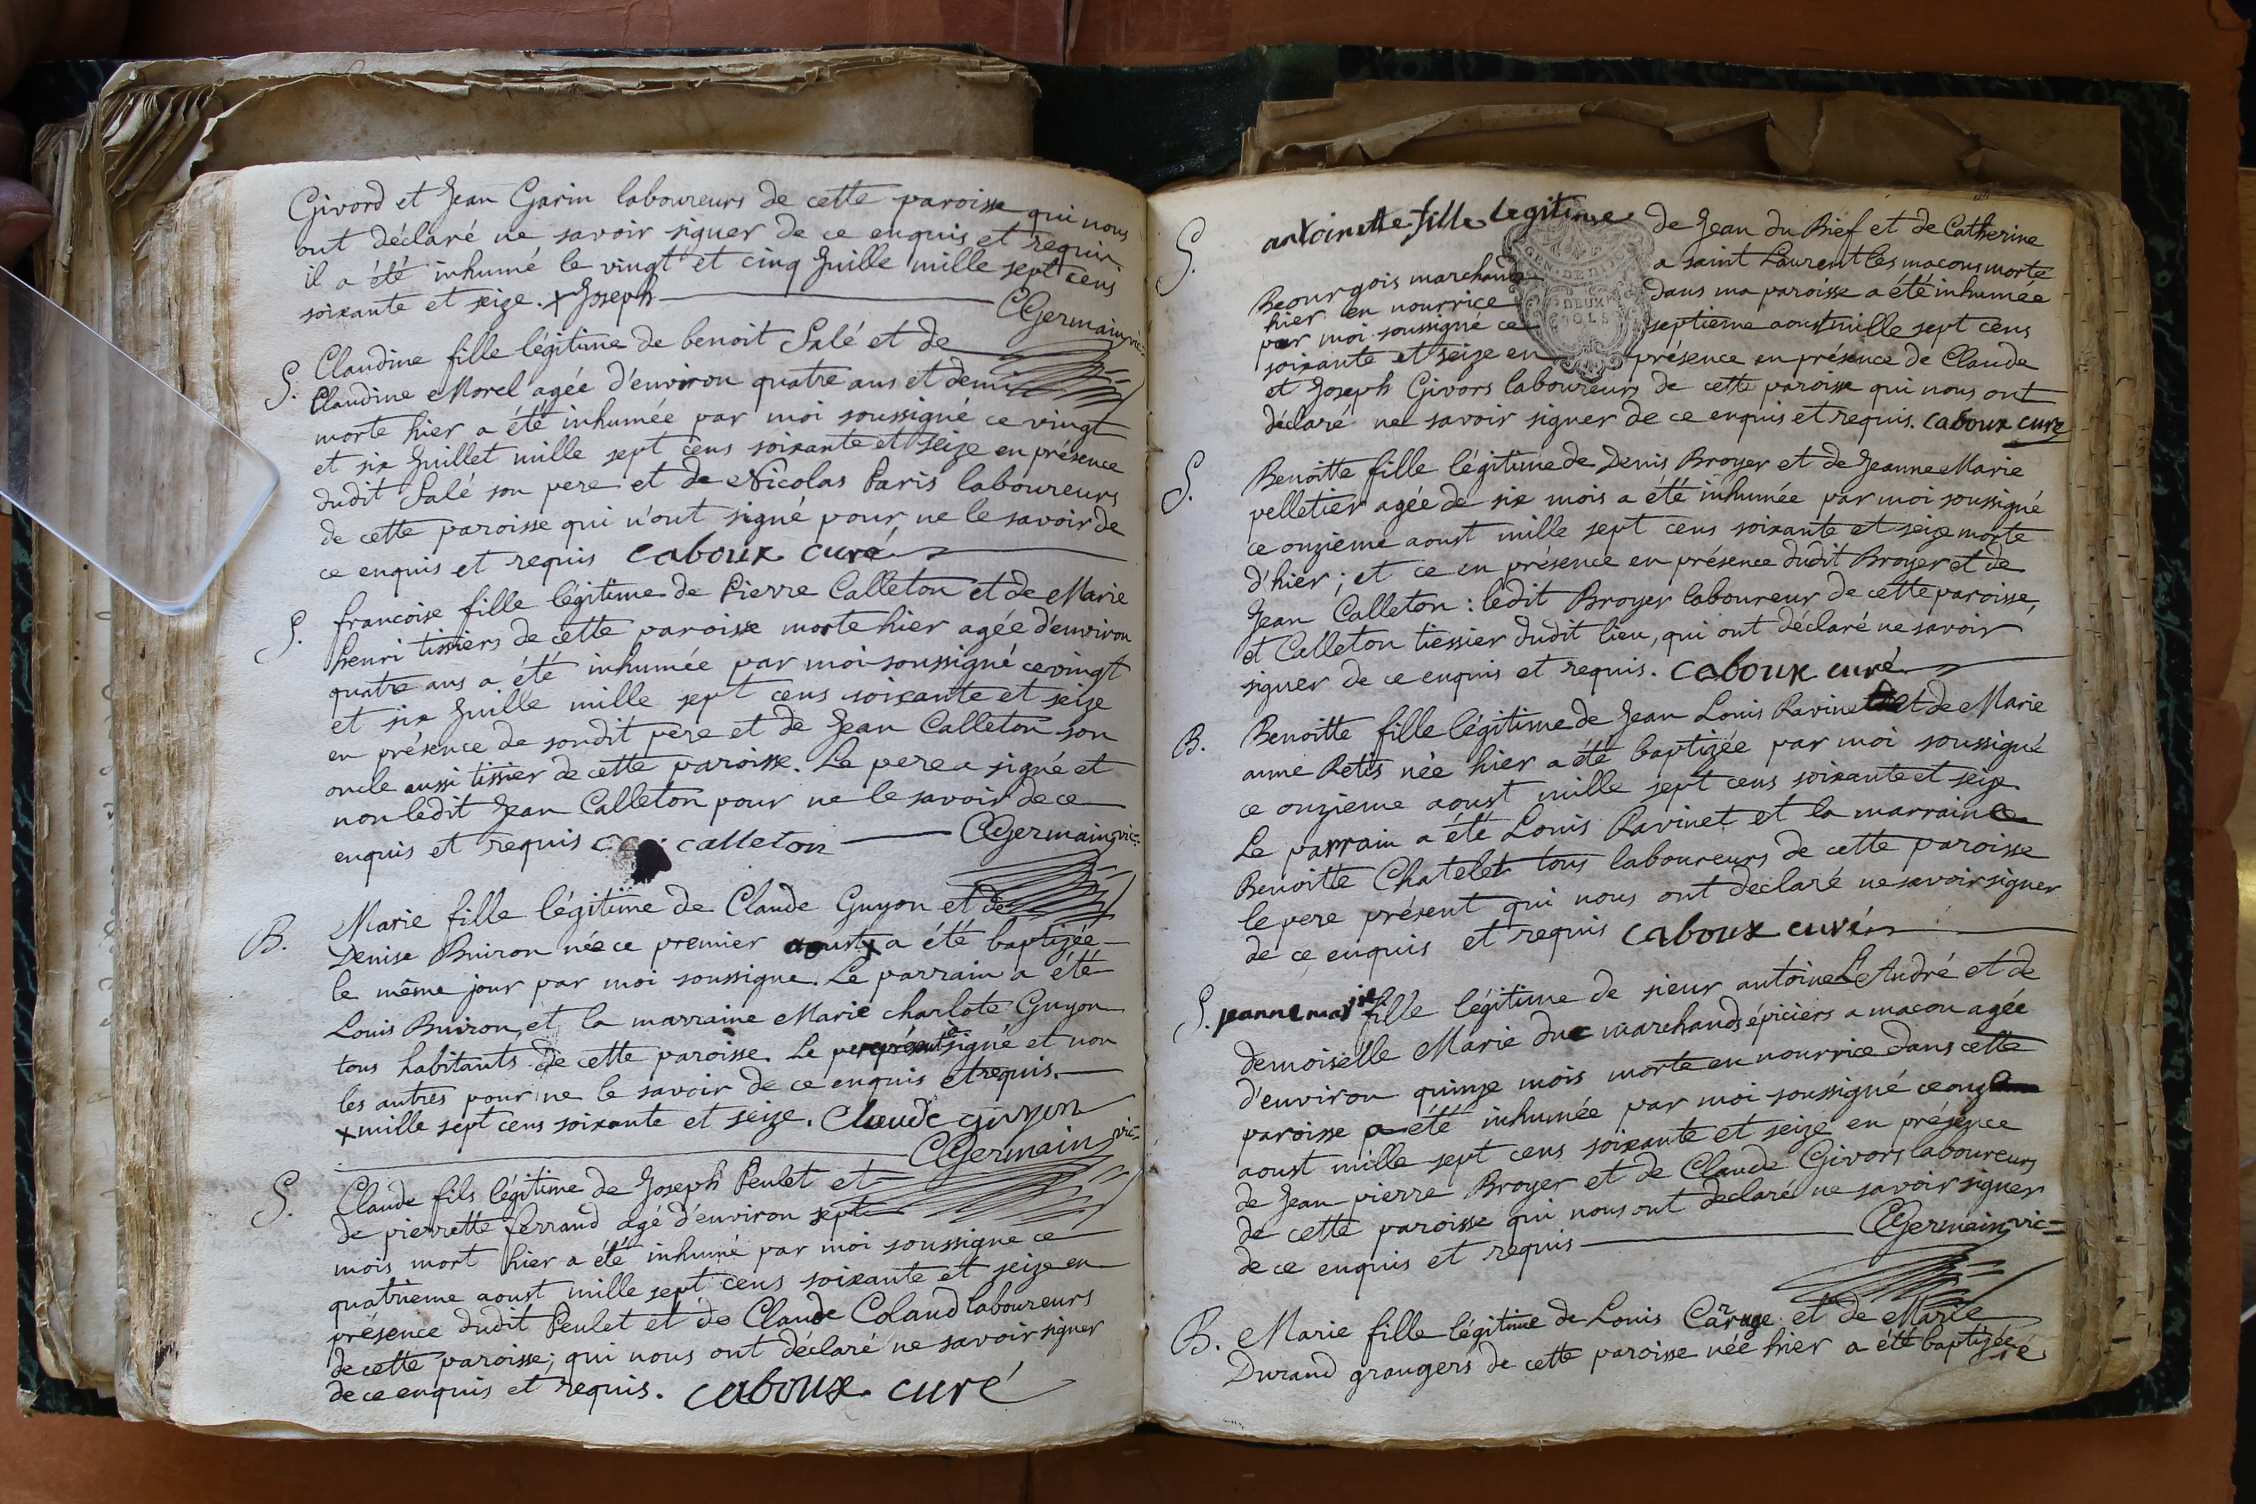 Givord et Jean Garin laboureurs de cette paroisse qui nous
ont déclaré ne savoir signer de ce enquis et requis.
il a été inhumé le vingt et cinq Juille mille sept cens
soixante et seize. x Joseph CGermain vic=
S. Claudine fille légitime de benoit Salé et de
Claudine Morel agée d'environ quatre ans et demi
morte hier a été inhumée par moi soussigné ce vingt
et six Juillet mille sept cens soixante et seize en présence
dudit Salé son pere et de Nicolas Paris laboureurs
de cette paroisse qui n'ont signé pour ne le savoir de
ce enquis et requis caboux curé
S. francoise fille légitime de Pierre Calleton et de Marie
henri tissiers de cette paroisse morte hier agée d'environ
quatre ans a été inhumée par moi soussigné ce vingt
et six Juille mille sept cens soixante et seize
en présence de sondit pere et de Jean Calleton son
oncle aussi tissier de cette paroisse. Le pere a signé et
non ledit Jean Calleton pour ne le savoir de ce
enquis et requis calleton CGermain vic=
B. Marie fille légitime de Claude Guyon et de
Denise Buiron née ce premier aoust x a été baptizée
le même jour par moi soussigné. Le parrain a été
Louis Buiron, et la marraine Marie charlote Guyon
tous habitants de cette paroisse. Le pere présent a signé et non
les autres pour ne le savoir de ce enquis et requis.
x mille sept cens soixante et seize. Claude guyon
CGermain vic=
S. Claude fils légitime de Joseph Peulet et
de pierrette ferrand agé d'environ sept
mois mort hier a été inhumé par moi soussigné ce
quatrieme aoust mille sept cens soixante et seize en
présence dudit Peulet et de Claude Coland laboureurs
de cette paroisse; qui nous ont déclaré ne savoir signer
de ce enquis et requis. caboux curé
S. antoinette fille legitime de Jean du Bief et de Catherine
Beourgois marchands a saint Laurent les macons morte
hier en nourrice dans ma paroisse a été inhumée
par moi soussigné ce septieme aoust mille sept cens
soixante et seize en présence en présence de Claude
et Joseph Givors laboureurs de cette paroisse qui nous ont
déclaré ne savoir signer de ce enquis et requis. caboux curé
S. Benoitte fille légitime de Denis Broyer et de Jeanne Marie
pelletier agée de six mois a été inhumée par moi soussigné
ce onzieme aoust mille sept cens soixante et seize morte
d'hier; et ce en présence en présence dudit Broyer et de
Jean Calleton: ledit Broyer laboureur de cette paroisse,
et Calleton tiessier dudit lieu, qui ont déclaré ne savoir
signer de ce enquis et requis. caboux curé
B. Benoitte fille légitime de Jean Louis Ravinet et de Marie
anne Retis née hier a été baptizée par moi soussigné
ce onzieme aoust mille sept cens soixante et seize
Le parrain a été Louis Ravinet et la marraine
Benoitte Chatelet tous laboureurs de cette paroisse
le pere présent qui nous ont déclaré ne savoir signer
de ce enquis et requis caboux curé
S. jeanne marie fille légitime de sieur antoine L'André et de
demoiselle Marie duc marchands épiciers a macon agée
d'environ quinze mois morte en nourrice dans cette
paroisse a été inhumée par moi soussigné ce onze
aoust mille sept cens soixante et seize en présence
de Jean pierre Broyer et de Claude Givors laboureurs
de cette paroisse qui nous ont declaré ne savoir signer
de ce enquis et requis CGermain vic=
B. Marie fille légitime de Louis Caruge et de Marie
Durand grangers de cette paroisse née hier a été baptizée